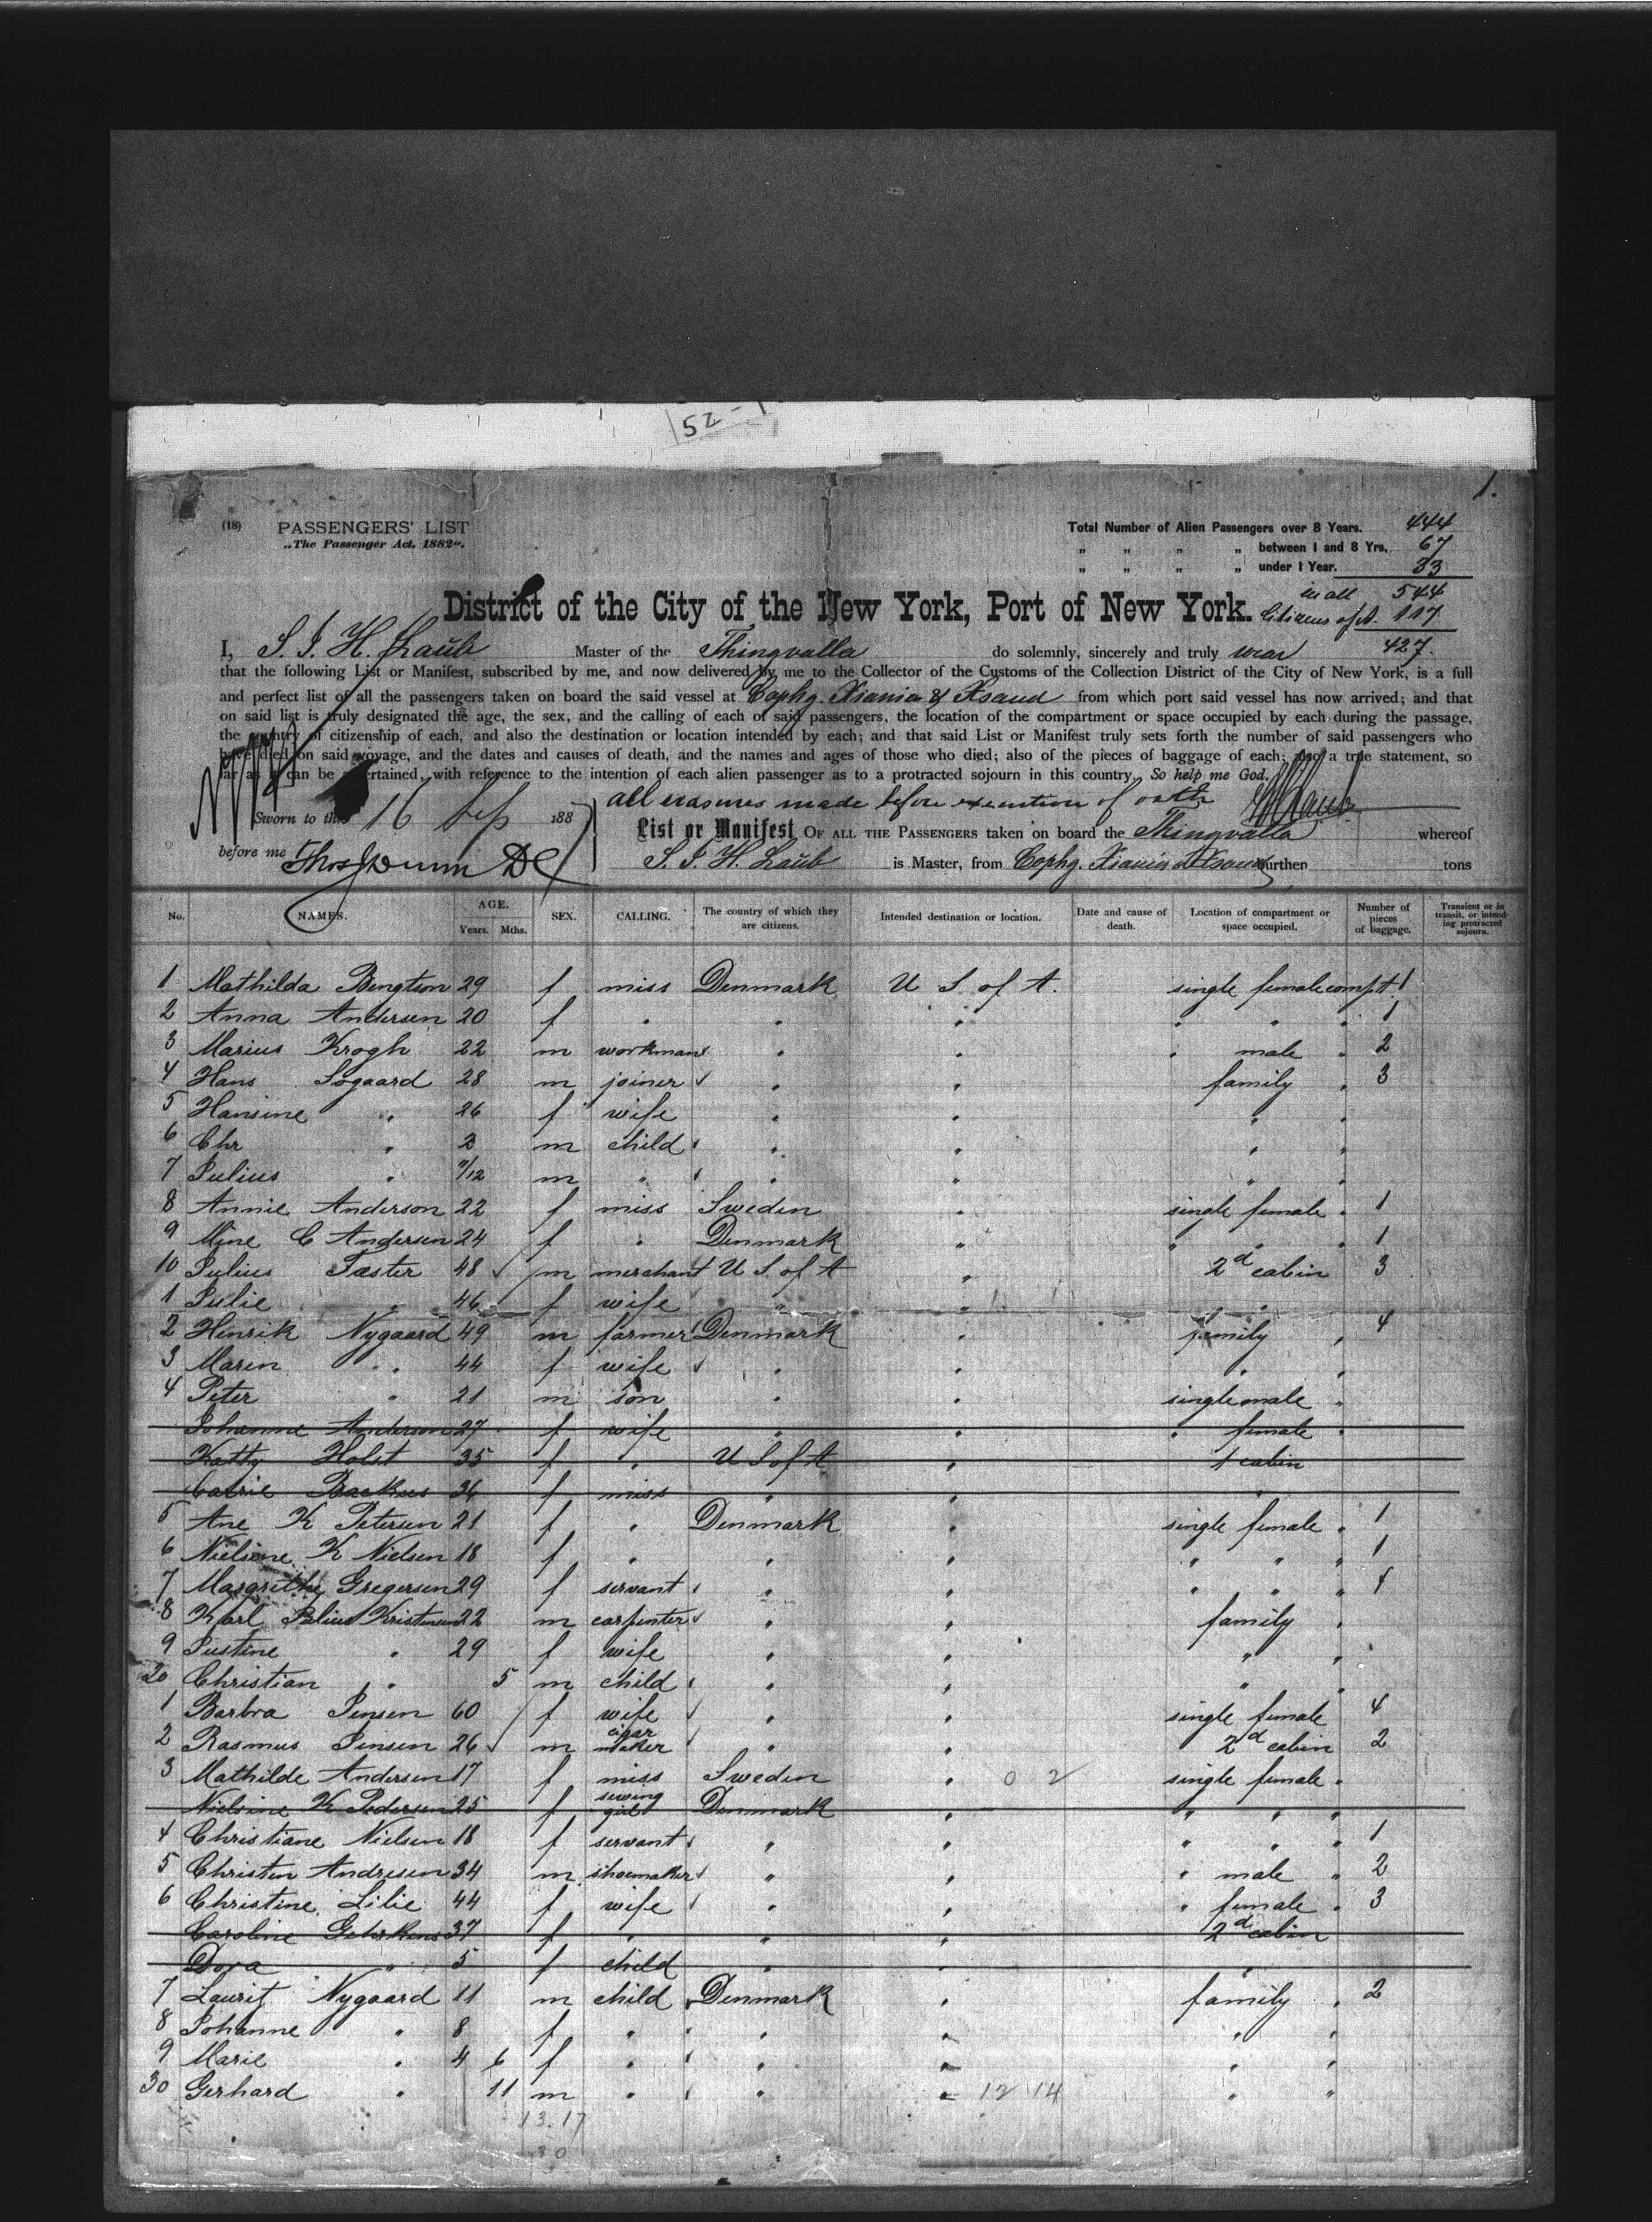 52-1
1.
(18) PASSENGERS' LIST
„The Passenger Act, 1882“.
Total Number of Alien Passengers over 8 Years. 444
„ „ „ „ between 1 and 8 Yrs. 67
„ „ „ „ under 1 Year. 33
in all 544
District of the City of the New York, Port of New York.
Citizens of 117
427.
I, S. J. H. Laub Master of the Thingvalla do solemnly, sincerely and truly swear
that the following List or Manifest, subscribed by me, and now delivered by me to the Collector of the Customs of the Collection District of the City of New York, is a full
and perfect list of all the passengers taken on board the said vessel at Cophg. Xiania & Xsand from which port said vessel has now arrived; and that
on said list is truly designated the age, the sex, and the calling of each of said passengers, the location of the compartment or space occupied by each during the passage,
the country of citizenship of each, and also the destination or location intended by each; and that said List or Manifest truly sets forth the number of said passengers who
have died on said voyage, and the dates and causes of death, and the names and ages of those who died; also of the pieces of baggage of each; also a true statement, so
far as it can be ascertained, with reference to the intention of each alien passenger as to a protracted sojourn in this country. So help me God.
all erasures made before execution of oath
Sworn to this 16 Sep 188
List or Manifest OF ALL THE PASSENGERS taken on board the Thingvalla whereof
before me
S. J. H. Laub is Master, from Cophg. Xiania & Xsand burthen tons
No. NAMES. AGE. Years. Mths. SEX. CALLING. The country of which they are citizens. Intended destination or location. Date and cause of death. Location of compartment or space occupied. Number of pieces of baggage. Transient or in transit, or intending protracted sojourn.
1 Mathilda Bengtson 29 f miss Denmark U S of A. single female compt. 1
2 Anna Andersen 20 f " " " " " " 1
3 Marius Krogh 22 m workman " " " male " 2
4 Hans Sogaard 28 m joiner " " family " 3
5 Hansine " 26 f wife " " " "
6 Chr " 2 m child " " " "
7 Julius " 11/12 m " " " " "
8 Annie Anderson 22 f miss Sweden " single female " 1
9 Mine C Andersen 24 f " Denmark " " " " 1
10 Julius Faster 48 m merchant U S of A " 2d cabin 3
1 Julie " 46 f wife " " "
2 Henrik Nygaard 49 m farmer Denmark " family " 4
3 Maren " 44 f wife " " " "
4 Peter " 21 m son " " single male "
Johanne Anderson 27 f wife " " " female "
Katty Holst 35 f " U S of A " 1 cabin
Carrie Backus 36 f miss " " "
5 Ane K Petersen 21 f " Denmark " single female " 1
6 Nielsine K Nielsen 18 f " " " " " " 1
7 Margrethe Gregersen 29 f servant " " " " " 1
8 Karl Julius Kristensen 22 m carpenter " " family "
9 Justine " 29 f wife " " " "
20 Christian " 5 m child " " " "
1 Barbra Jensen 60 f wife " " single female 4
2 Rasmus Jensen 26 m cigar maker " " 2d cabin 2
3 Mathilde Andersen 17 f miss Sweden " 0 2 single female "
Nielsine K Pedersen 25 f sewing girl Denmark " " " "
4 Christiane Nielsen 18 f servant " " " " " 1
5 Christen Andresen 34 m shoemaker " " " male " 2
6 Christine Lilie 44 f wife " " " female " 3
Caroline Gehrkens 37 f " " " 2d cabin
Dora " 5 f child " " "
7 Laurit Nygaard 11 m child Denmark " family " 2
8 Johanne " 8 f " " " " "
9 Marie " 4 6 f " " " " "
30 Gerhard " 11 m " " " 12 14 " "
13.17
30